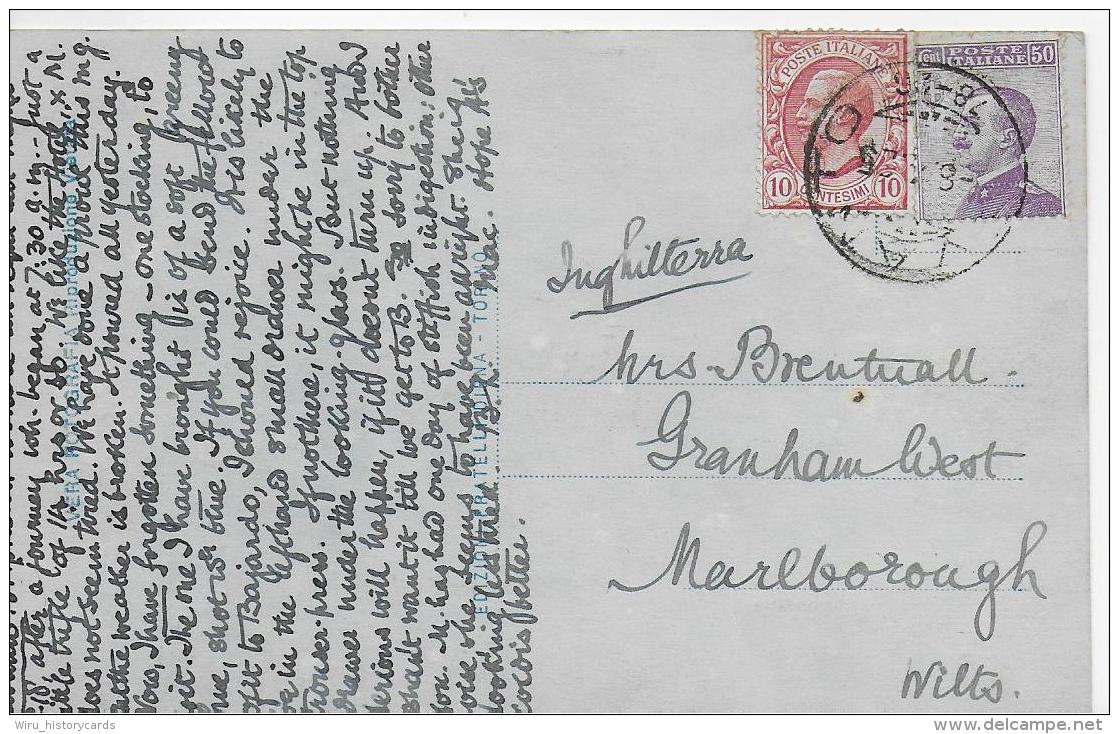 5.10 after a journey wh. began at 7.30 a.m. – Just a
little trifle of 1¼ hrs or so. We like the Hotel, & M.
does not seem tired. We have done a
but the weather is broken. It poured all yesterday.
Now, I have forgotten something – one stocking, to
wit. The one I have brought is of a soft greeny
hue, shot w. blue. If you could send the fellow
of it to Bajardo, I should rejoice. It is likely to
be in the left hand small drawer under the
trouser-press. If not there, it might be in the top
drawer under the looking-glass. But nothing
serious will happen, if it doesn't turn up. And I
shan't want it till we get to B. sorry to bother
you. M. has had one day of indigestion: other
wise she seems to have been alright. She is
looking less tired. Hope H's
cold is better.
VERA FOTOGRAFIA Riproduzione Vietata
EDIZIONE FRATELLI DIENA - TORINO
POSTE ITALIANE
10 CENTESIMI 10
Cent. POSTE ITALIANE 50
Inghilterra
Mrs Brentnall.
Granham West
Marlborough
Wilts.
Wiru_historycards
delcampe.net